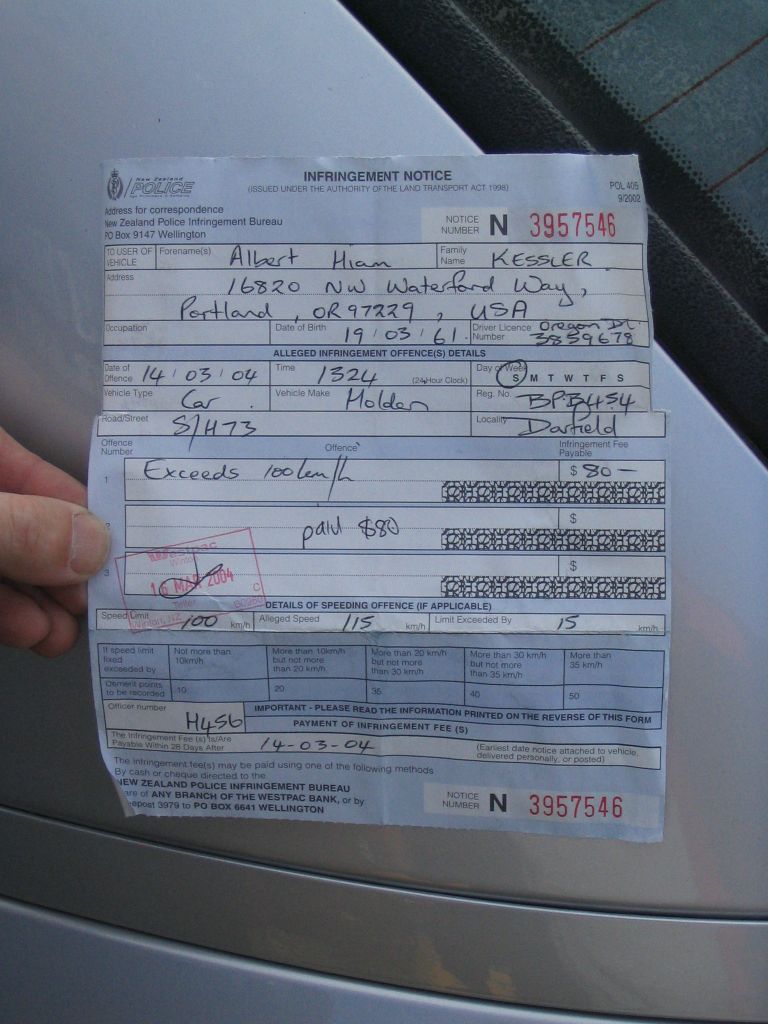 New Zealand POLICE
INFRINGEMENT NOTICE
(ISSUED UNDER THE AUTHORITY OF THE LAND TRANSPORT ACT 1998)
POL 405
9/2002
Address for correspondence
New Zealand Police Infringement Bureau
PO Box 9147 Wellington
NOTICE NUMBER N 3957546
TO USER OF VEHICLE Forename(s) Albert Hiam Family Name KESSLER
Address 16820 NW Waterford Way,
Portland, OR 97229, USA
Occupation Date of Birth 19/03/61. Driver Licence Number Oregon DL 3859678
ALLEGED INFRINGEMENT OFFENCE(S) DETAILS
Date of Offence 14/03/04 Time 1324 (24 Hour Clock) Day of Week S M T W T F S
Vehicle Type Car Vehicle Make Holden Reg. No. BPB454
Road/Street S/H73 Locality Darfield
Offence Number Offence Infringement Fee Payable
1 Exceeds 100km/h $ 80 —
2 paid $80 $
3 $
Westpac
16 MAR 2004
Teller C
Winton, NZ
DETAILS OF SPEEDING OFFENCE (IF APPLICABLE)
Speed Limit 100 km/h Alleged Speed 115 km/h Limit Exceeded By 15 km/h
If speed limit fixed exceeded by Not more than 10km/h. More than 10km/h but not more than 20 km/h. More than 20 km/h but not more than 30 km/h More than 30 km/h but not more than 35 km/h More than 35 km/h
Demerit points to be recorded 10 20 35 40 50
Officer number H456 IMPORTANT - PLEASE READ THE INFORMATION PRINTED ON THE REVERSE OF THIS FORM
PAYMENT OF INFRINGEMENT FEE (S)
The Infringement Fee (s) Is/Are Payable Within 28 Days After 14-03-04 (Earliest date notice attached to vehicle, delivered personally, or posted)
The infringement fee(s) may be paid using one of the following methods
By cash or cheque directed to the
NEW ZEALAND POLICE INFRINGEMENT BUREAU
are of ANY BRANCH OF THE WESTPAC BANK, or by
epost 3979 to PO BOX 6641 WELLINGTON
NOTICE NUMBER N 3957546